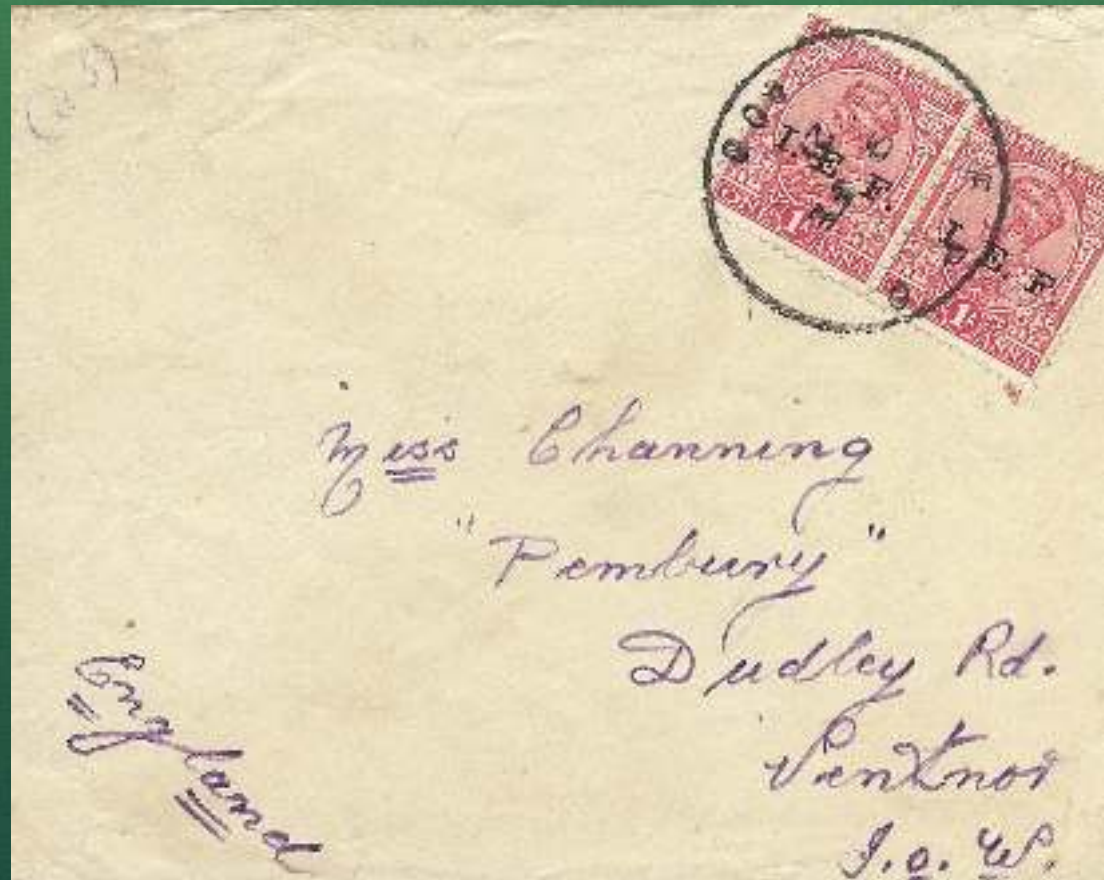 I.E.F.
I.E.F
1
1
Miss Channing
"Pembury"
Dudley Rd.
Ventnor
I.o.W.
England